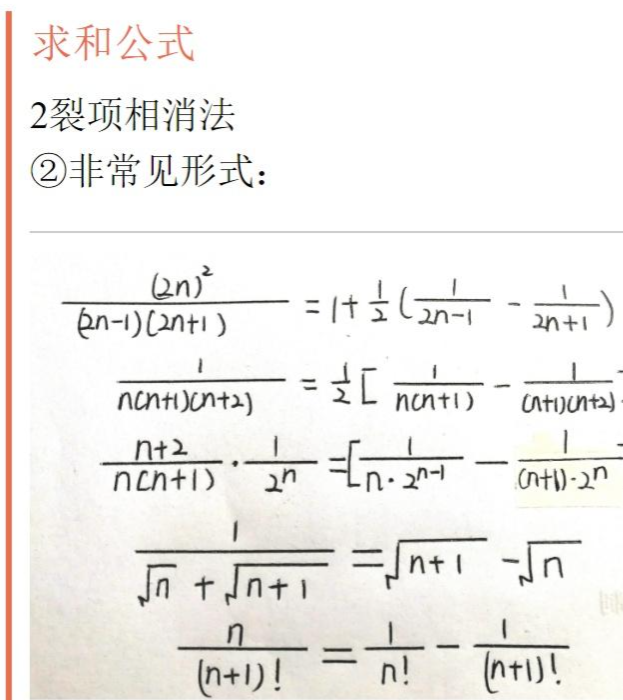 求和公式
2裂项相消法
②非常见形式：
(2n)²/((2n-1)(2n+1)) = 1+1/2(1/(2n-1) - 1/(2n+1))
1/(n(n+1)(n+2)) = 1/2[1/(n(n+1)) - 1/((n+1)(n+2))]
(n+2)/(n(n+1))·1/2ⁿ =[1/(n·2ⁿ⁻¹) - 1/((n+1)·2ⁿ)
1/(√n + √(n+1)) = √(n+1) - √n
n/(n+1)! = 1/n! - 1/(n+1)!